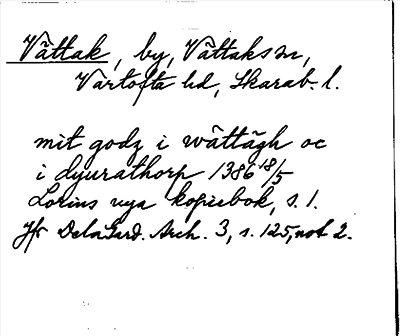 Vättak, by, Vättaks sn,
Vartofta hd, Skarab. l.
mit godz i wättägh oc
i dyurathorp 1386 18/5
nya kopiebok, s. 1.
Jfr DelaGard. Arch. 3, s. 125, not 2.